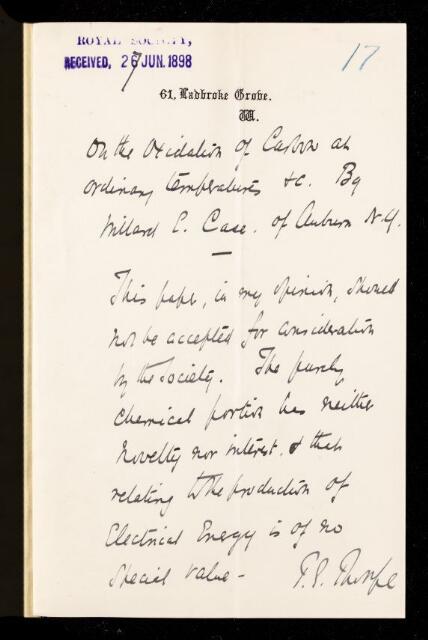 ROYAL SOCIETY,
17
RECEIVED, 27 JUN. 1898
61, Ladbroke Grove.
W.
On the Oxidation of Carbon at
ordinary temperatures &c. By
Willard E. Case. of Auburn N.Y.
This paper, in my opinion, should
not be accepted for consideration
by the Society. The purely
chemical portion has neither
novelty nor interest, & that
relating to the production of
Electrical Energy is of no
special value –
T.E. Thorpe